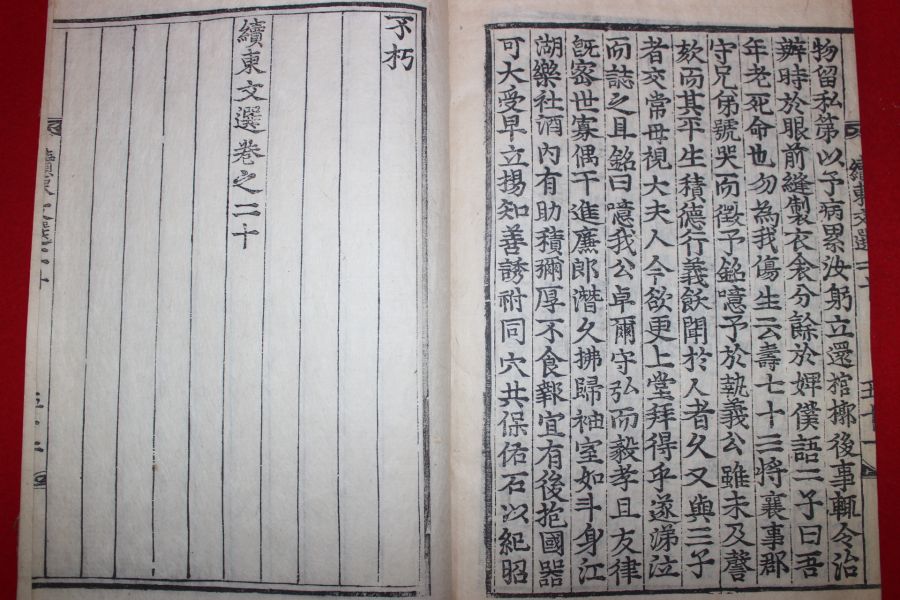 物留私第以予病累汝躬立還棺槨後事輒令治
辦時於眼前縫製衣衾分餘於婢僕語二子曰吾
年老死命也勿為我傷生云壽七十三將襄事郡
守兄弟號哭而徵予銘噫予於執義公雖未及謦
欬而其平生積德行義飫聞於人者久又與三子
者交常母視大夫人今欲更上堂拜得乎遂涕泣
而誌之且銘曰噫我公卓爾守弘而毅孝且友律
旣密世寡偶干進廉郎潛久拂歸袖室如斗身江
湖樂社酒內有助積彌厚不食報宜有後抱國器
可大受早立揚知善誘祔同穴共保佑石以紀昭
不朽
續東文選卷之二十
續東文選二十
五十一